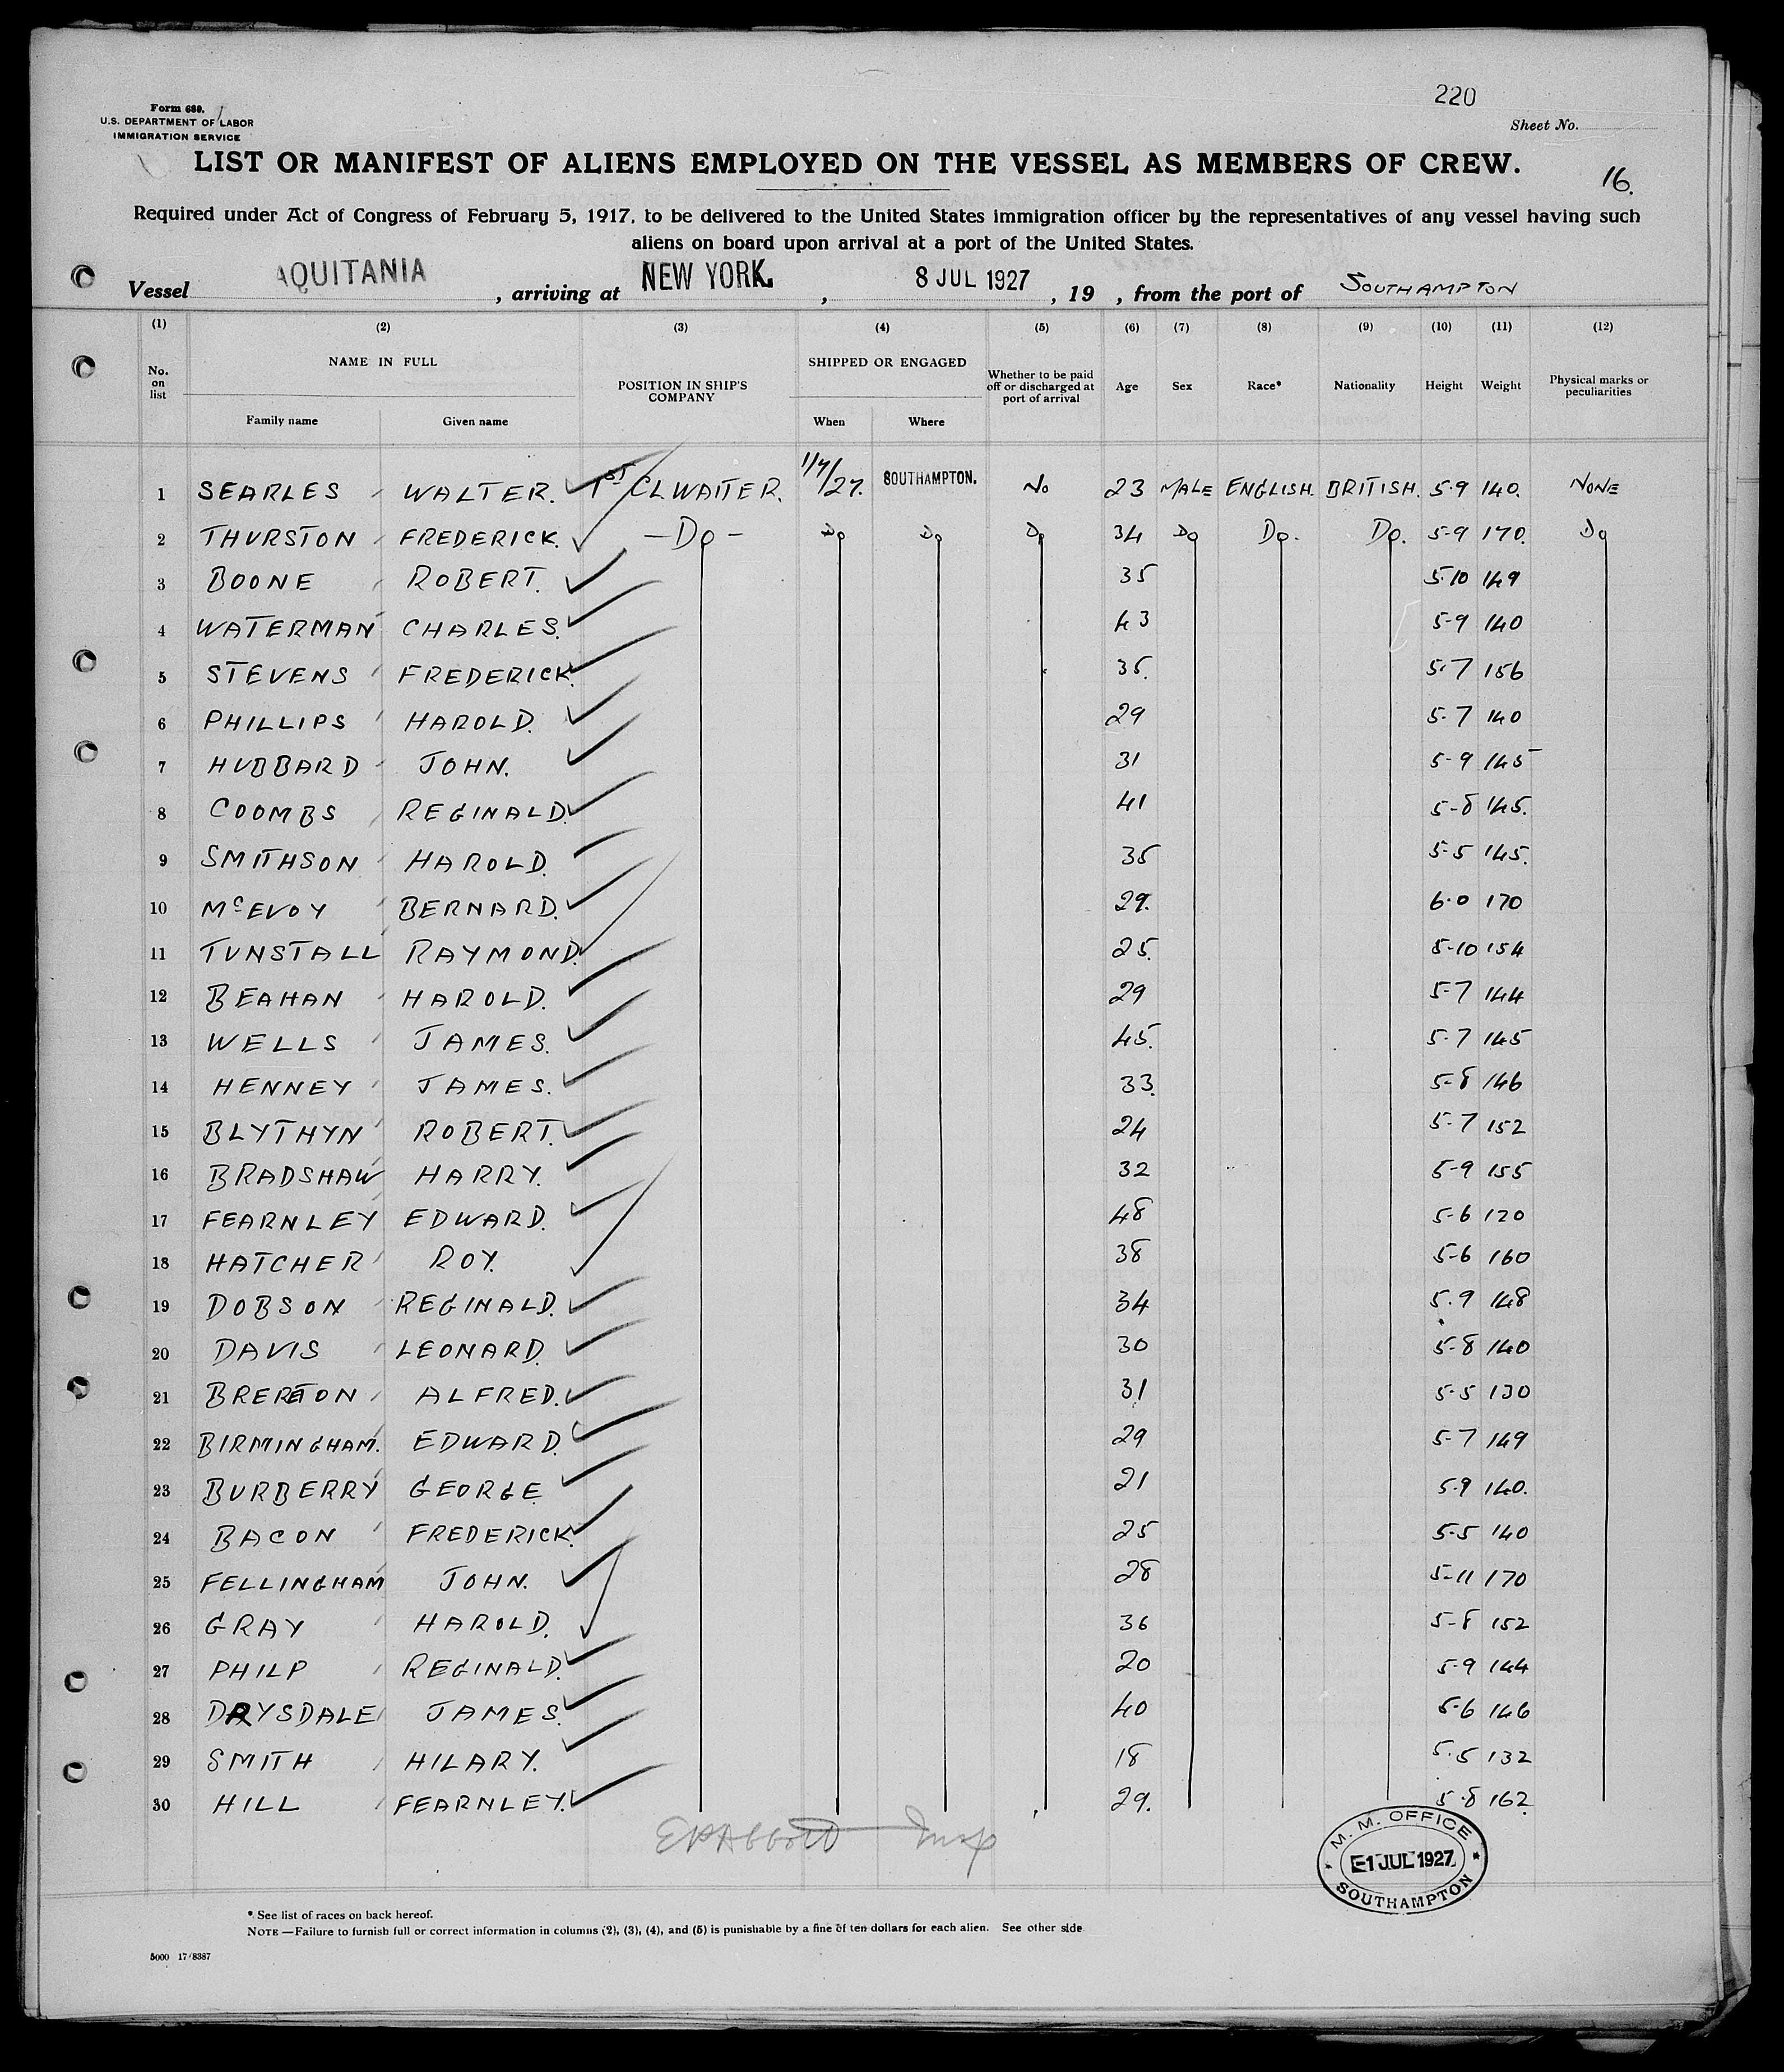 220
Form 689.
U.S. DEPARTMENT OF LABOR
IMMIGRATION SERVICE
Sheet No.
LIST OR MANIFEST OF ALIENS EMPLOYED ON THE VESSEL AS MEMBERS OF CREW.
16.
Required under Act of Congress of February 5, 1917, to be delivered to the United States immigration officer by the representatives of any vessel having such
aliens on board upon arrival at a port of the United States.
Vessel AQUITANIA , arriving at NEW YORK. , 8 JUL 1927 , 19 , from the port of SOUTHAMPTON
(1) (2) (3) (4) (5) (6) (7) (8) (9) (10) (11) (12)
No. on list NAME IN FULL POSITION IN SHIP'S COMPANY SHIPPED OR ENGAGED Whether to be paid off or discharged at port of arrival Age Sex Race* Nationality Height Weight Physical marks or peculiarities
Family name Given name When Where
1 SEARLES WALTER. 1ST CL WAITER. 1/7/27. SOUTHAMPTON. No 23 MALE ENGLISH. BRITISH. 5-9 140. NONE
2 THURSTON FREDERICK. - Do - Do Do Do 34 Do Do. Do. 5-9 170. Do
3 BOONE ROBERT. 35 5-10 149
4 WATERMAN CHARLES. 43 5-9 140
5 STEVENS FREDERICK. 35. 5-7 156
6 PHILLIPS HAROLD. 29 5-7 140
7 HUBBARD JOHN. 31 5-9 145
8 COOMBS REGINALD. 41 5-8 145.
9 SMITHSON HAROLD. 35 5-5 145.
10 McEVOY BERNARD. 29. 6-0 170
11 TUNSTALL RAYMOND. 25. 5-10 154
12 BEAHAN HAROLD. 29 5-7 144
13 WELLS JAMES. 45. 5-7 145
14 HENNEY JAMES. 33. 5-8 146
15 BLYTHYN ROBERT. 24 5-7 152
16 BRADSHAW HARRY. 32 5-9 155
17 FEARNLEY EDWARD. 48 5-6 120
18 HATCHER ROY. 38 5-6 160
19 DOBSON REGINALD. 34 5.9 148
20 DAVIS LEONARD. 30 5-8 140
21 BRERETON ALFRED. 31 5-5 130
22 BIRMINGHAM. EDWARD. 29 5-7 149
23 BURBERRY GEORGE 21 5.9 140.
24 BACON FREDERICK. 25 5-5 140
25 FELLINGHAM JOHN. 28 5-11 170
26 GRAY HAROLD. 36 5-8 152
27 PHILP REGINALD. 20 5-9 144
28 DRYSDALE JAMES. 40 5-6 146
29 SMITH HILARY. 18 5.5 132
30 HILL FEARNLEY. 29. 5.8 162
Insp
M. M. OFFICE
E-1 JUL 1927
SOUTHAMPTON
* See list of races on back hereof.
NOTE.—Failure to furnish full or correct information in columns (2), (3), (4), and (5) is punishable by a fine of ten dollars for each alien. See other side
5000 17/8387